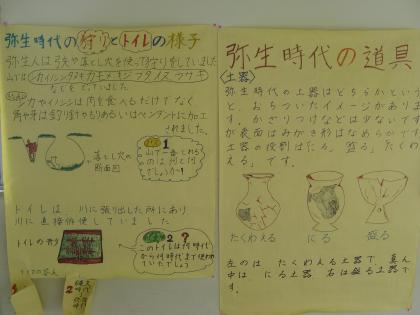 弥生時代の狩りとトイレの様子
弥生人は弓矢や落とし穴を使って狩りをしていました。
山では
などをとっていました。
シカやイノシシは肉を食べるだけでなく
角や牙は釣り針やもりあるいはペンダントに加工
されました。
落とし穴の
断面図
1
山で一番とれる
のは何と何
でしょうか?
トイレは 川に張り出した所にあり
川に直接排便していました
トイレの形
2?
このトイレは何時代
から何時代まで使われ
ていたでしょう
1
2
弥生時代の道具
〈土器〉
弥生時代の土器はどちらかという
と、おちついたイメージがありま
す。かざりつけなどは少ないです
が表面はみがき形はなめらかです。
土器の役割はにる、盛る、たくわ
える」です。
たくわえる
にる
盛る
左のは たくわえる土器で 真ん
中は にる土器 右は盛る土器です。